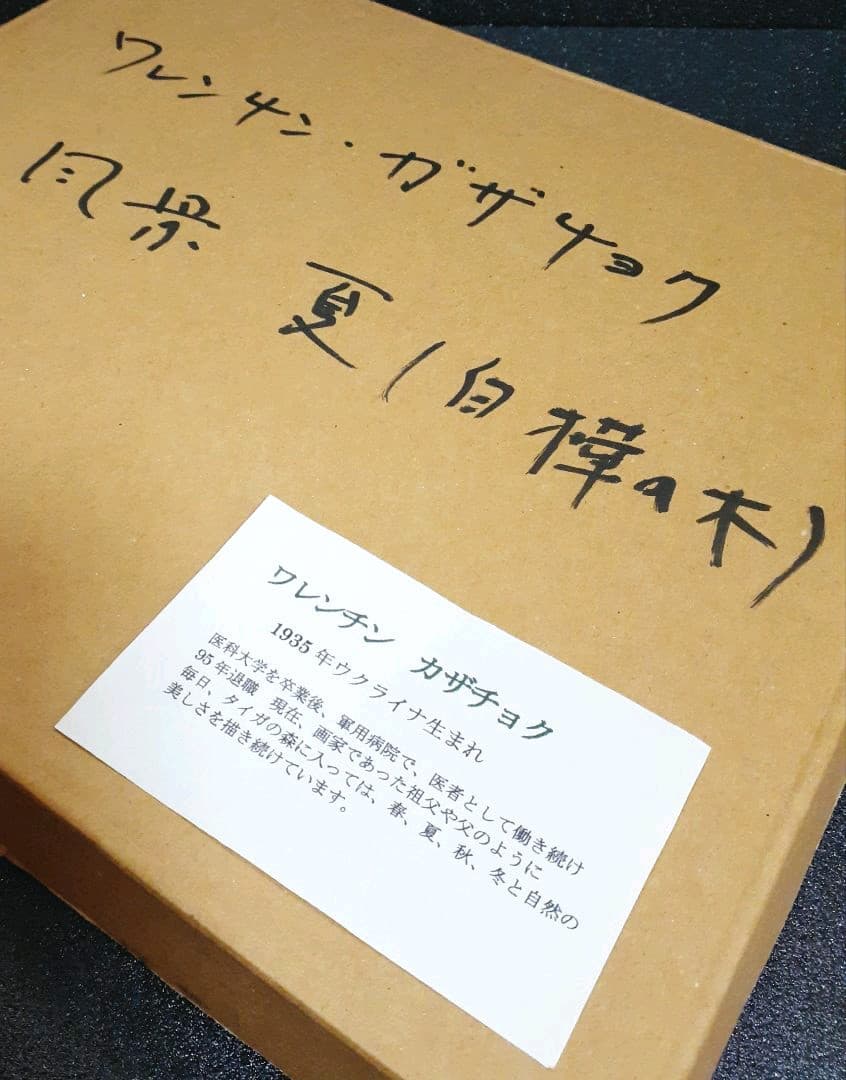 ワレンチン・ガザチョク
風景 夏(白樺の木)
ワレンチン カザチョク
1935年ウクライナ生まれ
医科大学を卒業後、軍用病院で、医者として働き続け
95年退職 現在、画家であった祖父や父のように
毎日、タイガの森に入っては、春、夏、秋、冬と自然の
美しさを描き続けています。